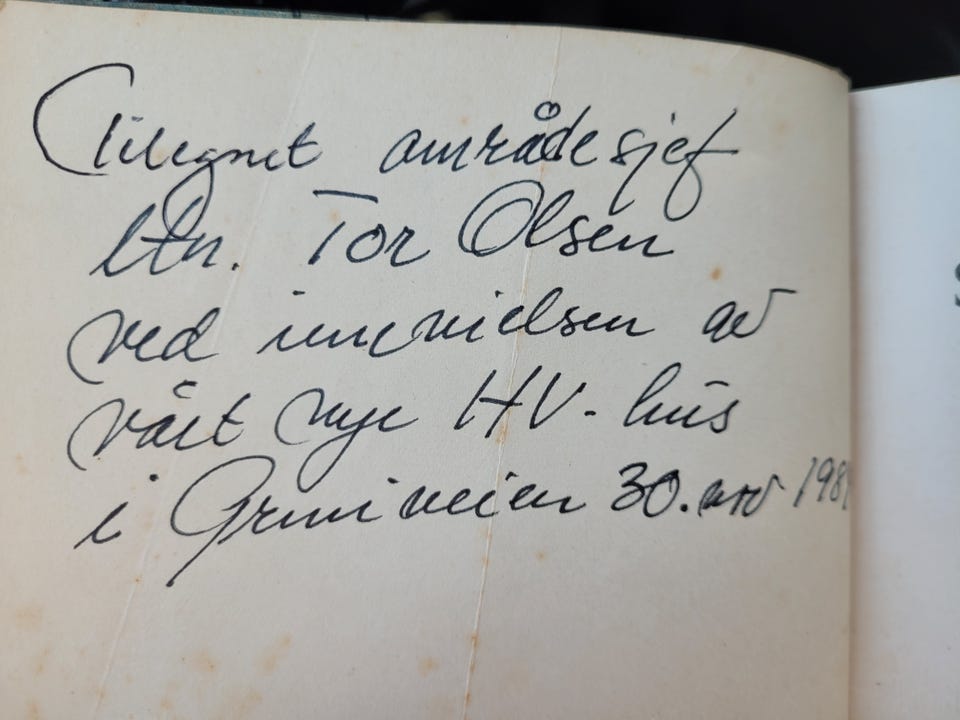 Tilegnet områdesjef
ltn. Tor Olsen
ved innvielsen av
vårt nye HV-hus
i Griniveien 30. nov